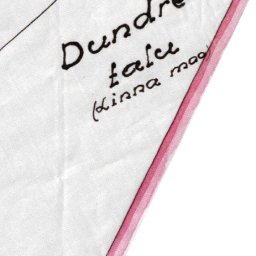 Dundre
talu
(Linna maa)